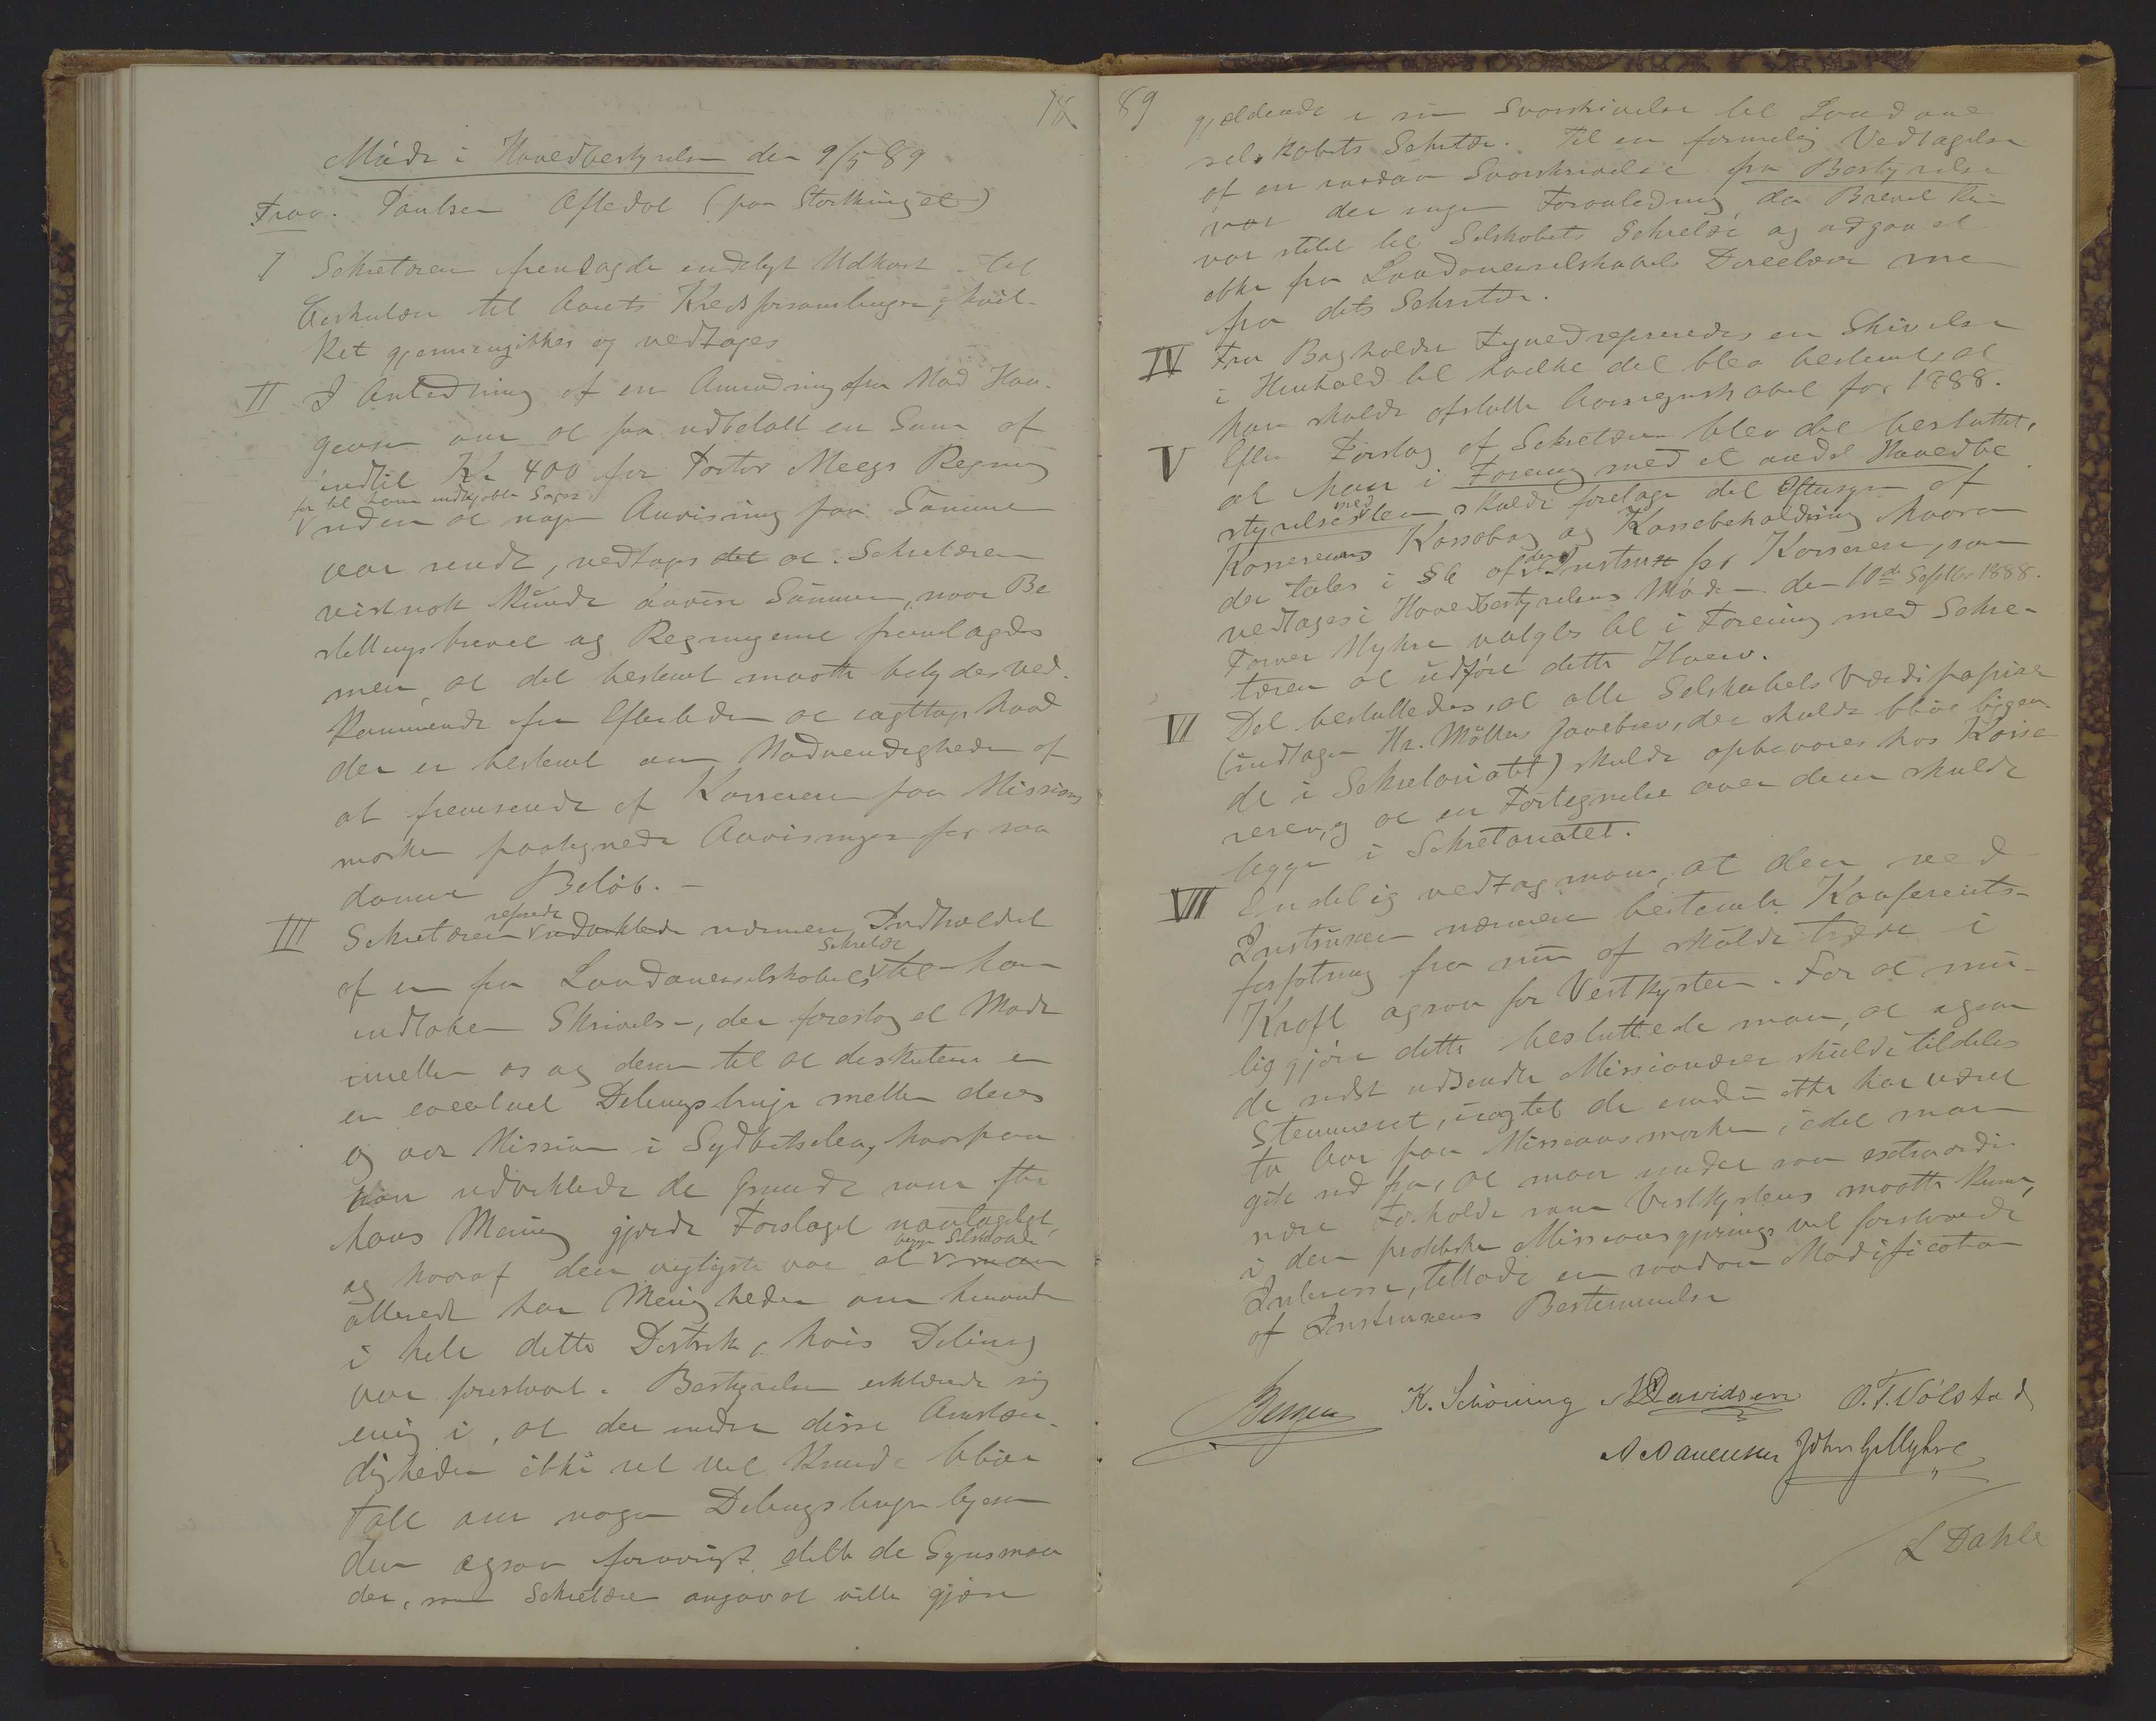 18
Møde i Hovedbestyrelsen den 9/5 89
Frav. Poulsen Oftedal (paa Storthinget)
I Sekretæren fremlagde endeligt Udkast til
Cirkulær til Aarets Kredsforsamlinger, hvil-
ket gjennemgikkes og vedtoges
II I Anledning af en Anmodning fra Mad Hau-
geasen om at faa udbetalt en Sum af
indtil Kr 400 for Pastor Meegs Regning
for til ham indkjøbte Sager
uden at nogen Anvisning paa Summen
var sendt, vedtoges det at Sekretæren
vistnok kunde anvise Summen, naar Be
stillingsbrevet og Regningerne fremlagdes
men, at det bestemt maatte betydes Ved-
kommende for Eftertiden at iagttage hvad
der er bestemt om Nødvendigheden af
at fremsende af Kassereren paa Missions
marken paategnede Anvisninger for saa
danne Beløb. –
III Sekretæren refererede udviklede nærmere Indholdet
af en fra Londonerselskabets Sekretær til ham
indløben Skrivelse, der foreslog et Møde
mellem os og dem til at diskutere en
en eventuel Delingslinje mellem deres
og vor Mission i Sydbetsileo, hvorpaa
han udviklede de Grunde som efter
hans Mening gjorde Forslaget uantageligt,
og hvoraf den vigtigste var at begge Selskaber man
allerede har Menigheder om hinanden
i hele dette Distrikt, hvis Deling
var foreslaaet. Bestyrelsen erklærede sig
enig i, at der under disse Omstæn-
digheder ikke ret vel kunde blive
Tale om nogen Delingslinje ligesom
den ogsaa forøvrigt delte de Synsmaa
der, som Sekretæren angav at ville gjøre
89
gjældende i sin Svarskrivelse til Londoner
selskabets Sekretær. Til en formelig Vedtagelse
af en saadan Svarskrivelse fra Bestyrelsen
var der ingen Foranledning, da Brevet kun
var stilet til Selskabets Sekretær og udgaaet
ikke fra Londonerselskabets Direction men
fra dets Sekretær.
IV Fra Bogholder Tyved refereredes en Skrivelse
i Henhold til hvilke det blev bestemt, at
han skulde afslutte Aarsregnskabet for 1888.
V Efter Forslag af Sekretæren blev det besluttet,
at han i Forening med et andet Hovedbe
styrelsesmedlem skulde foretage det Eftersyn af
Kassererens Kassabog og Kassebeholdning hvorom
der tales i § 6 af den Instrux for Kassereren, som
vedtoges i Hovedbestyrelsens Møde den 10de Septbr 1888.
Farver Myhre valgtes til i Forening med Sekre-
tæren at udføre dette Hverv.
VI Det besluttedes, at alle Selskabets Værdipapirer
(undtagen Hr. Møllers Gavebrev, der skulde blive liggen-
de i Sekretariatet) skulde opbevares hos Kasse-
reren, og at en Fortegnelse over dem skulde
ligge i Sekretariatet.
VII Endelig vedtog man, at den ved
Instruxen nærmere bestemte Konferents-
forfatning fra nu af skulde træde i
Kraft ogsaa for Vestkysten. For at mu-
liggjøre dette besluttede man, at ogsaa
de sidst udsendte Missionærer skulde tildeles
Stemmeret, uagtet de endnu ikke har været
to Aar paa Missionsmarken, idet man
gik ud fra, at man under saa extraordi-
nære Forholde som Vestkystens maatte kunne,
i den praktiske Missionsgjernings vel forstaaede
Interesse, tillade en saadan Modification
af Instruxens Bestemmelse
K. Schöning ADavidsen O.T. Vølstad
John G Myhre
L Dahle